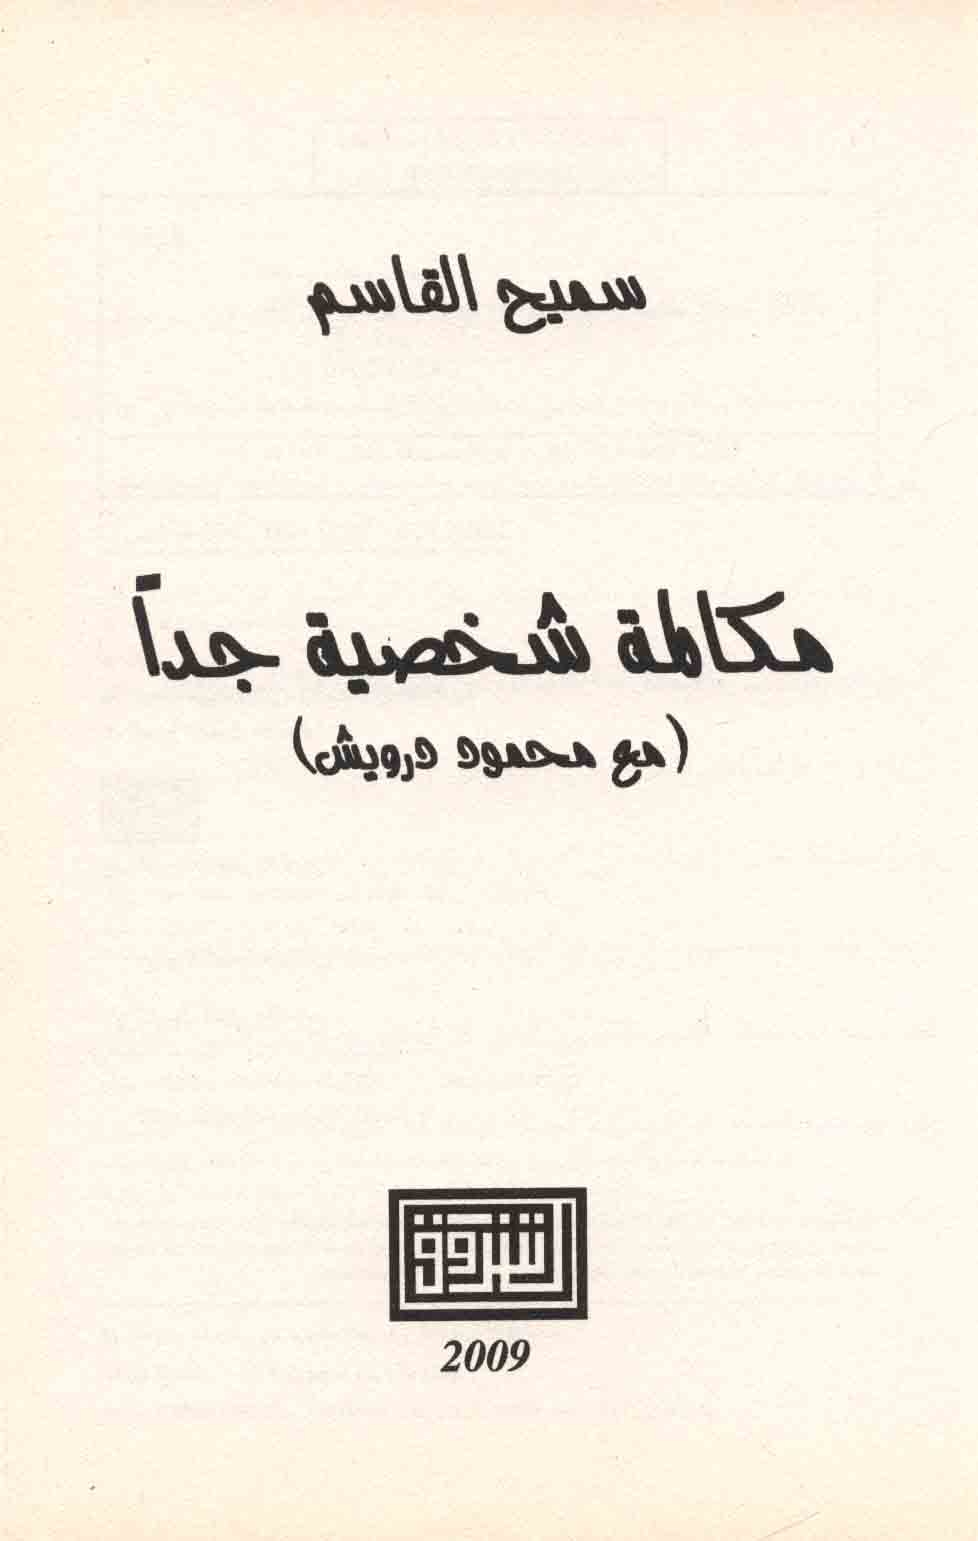 سميح القاسم
مكالمة شخصية جداً
(مع محمود درويش)
الشروق
2009